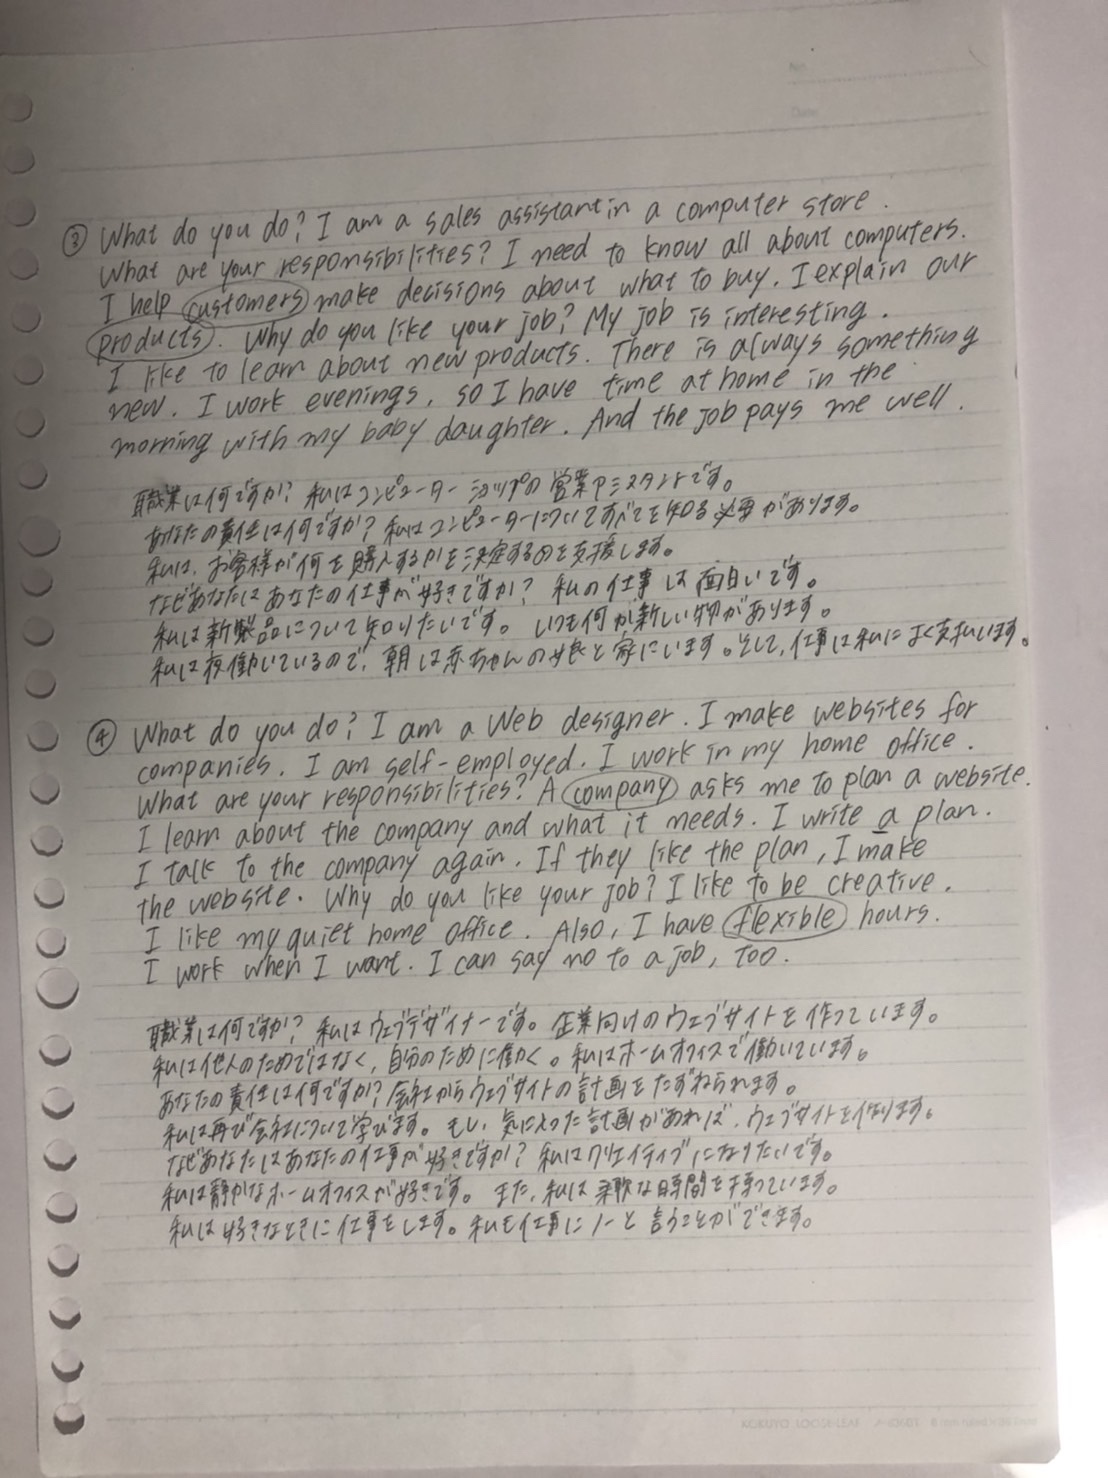 ③ What do you do? I am a sales assistant in a computer store.
What are your responsibilities? I need to know all about computers.
I help customers make decisions about what to buy. I explain our
products. Why do you like your job? My job is interesting.
I like to learn about new products. There is always something
new. I work evenings, so I have time at home in the
morning with my baby daughter. And the job pays me well.
職業は何ですか? 私はコンピューターショップの営業アシスタントです。
あなたの責任は何ですか? 私はコンピューターについてすべてを知る必要があります。
私は、お客様が何を購入するかを決定するのを支援します。
なぜあなたはあなたの仕事が好きですか? 私の仕事は面白いです。
私は新製品について知りたいです。いつも何か新しい物があります。
私は夜働いているので、朝は赤ちゃんの娘と家にいます。そして、仕事は私によく支払います。
④ What do you do? I am a Web designer. I make websites for
companies. I am self-employed. I work in my home office.
What are your responsibilities? A company asks me to plan a website.
I learn about the company and what it needs. I write a plan.
I talk to the company again. If they like the plan, I make
the website. Why do you like your job? I like to be creative.
I like my quiet home office. Also, I have flexible hours.
I work when I want. I can say no to a job, too.
職業は何ですか? 私はウェブデザイナーです。企業向けのウェブサイトを作っています。
私は他人のためではなく、自分のために働く。私はホームオフィスで働いています。
あなたの責任は何ですか? 会社からウェブサイトの計画をたずねられます。
私は再び会社について学びます。もし、気に入った計画があれば、ウェブサイトを作ります。
なぜあなたはあなたの仕事が好きですか? 私はクリエイティブになりたいです。
私は静かなホームオフィスが好きです。また、私は柔軟な時間を持っています。
私は好きなときに仕事をします。私も仕事にノーと言うことができます。
KOKUYO LOOSE-LEAF